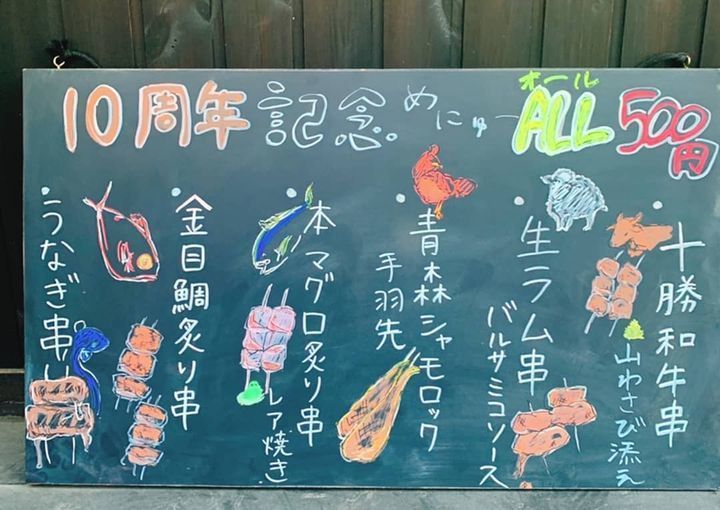 10周年記念めにゅー
オール
ALL 500円
十勝和牛串
山わさび添え
生ラム串
バルサミコソース
青森シャモロック
手羽先
本マグロ炙り串
レア焼き
金目鯛炙り串
うなぎ串